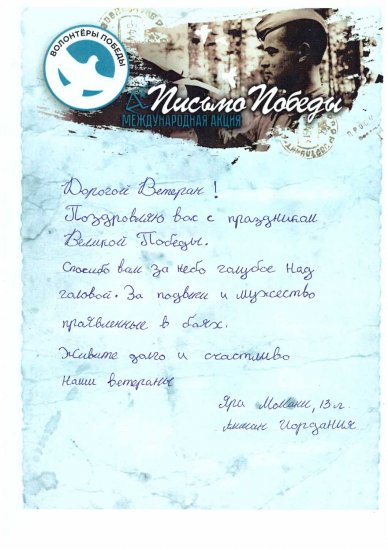 ВОЛОНТЁРЫ ПОБЕДЫ
Письмо Победы
МЕЖДУНАРОДНАЯ АКЦИЯ
Дорогой Ветеран!
Поздровляю вас с праздником
Великой Победы.
Спосибо вам за небо голубое Над
головой. За подвиги и мужество
проявленные в боях.
Живите долго и счастливо
Наши ветераны
Яра Момани, 13 л.
Амман Иордания